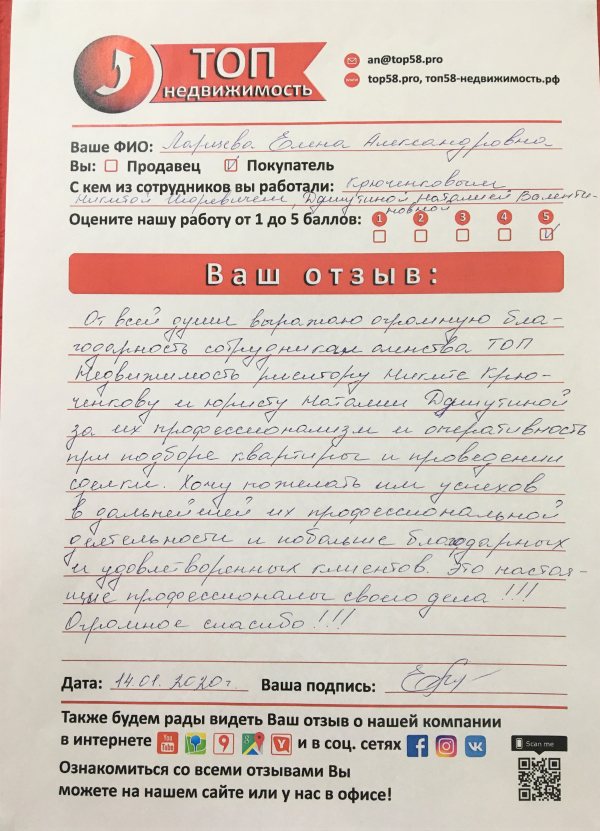 ТОП
недвижимость
an@top58.pro
www top58.pro, топ58-недвижимость.рф
Ваше ФИО: Ларцева Елена Александровна
Вы: Продавец Покупатель
С кем из сотрудников вы работали: Крюченковым
Никитой Игоревичем, Джутиной Наталией Валенти-
новной
Оцените нашу работу от 1 до 5 баллов: 1 2 3 4 5
Ваш отзыв:
От всей души выражаю огромную бла-
годарность сотрудникам агенства ТОП
Недвижимость риелтору Никите Крю-
ченкову и юристу Наталии Джутиной
за их профессионализм и оперативность
при подборе квартиры и проведении
сделки. Хочу пожелать им успехов
в дальнейшей их профессиональной
деятельности и побольше благодарных
и удовлетворенных клиентов. Это настоя-
щие профессионалы своего дела!!!
Огромное спасибо!!!
Дата: 14.01.2020г. Ваша подпись:
Также будем рады видеть Ваш отзыв о нашей компании
в интернете You Tube 9 Y и в соц. сетях
Scan me
Ознакомиться со всеми отзывами Вы
можете на нашем сайте или у нас в офисе!